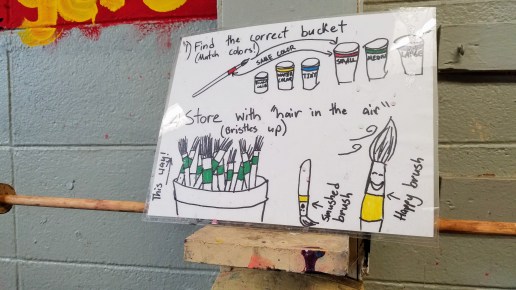 1) Find the correct bucket
(Match colors!)
SAME COLOR
SMALL
MEDIUM
LARGE
TINY
Store with "hair in the air"
(Bristles up)
This way!
Smushed
brush
Happy brush